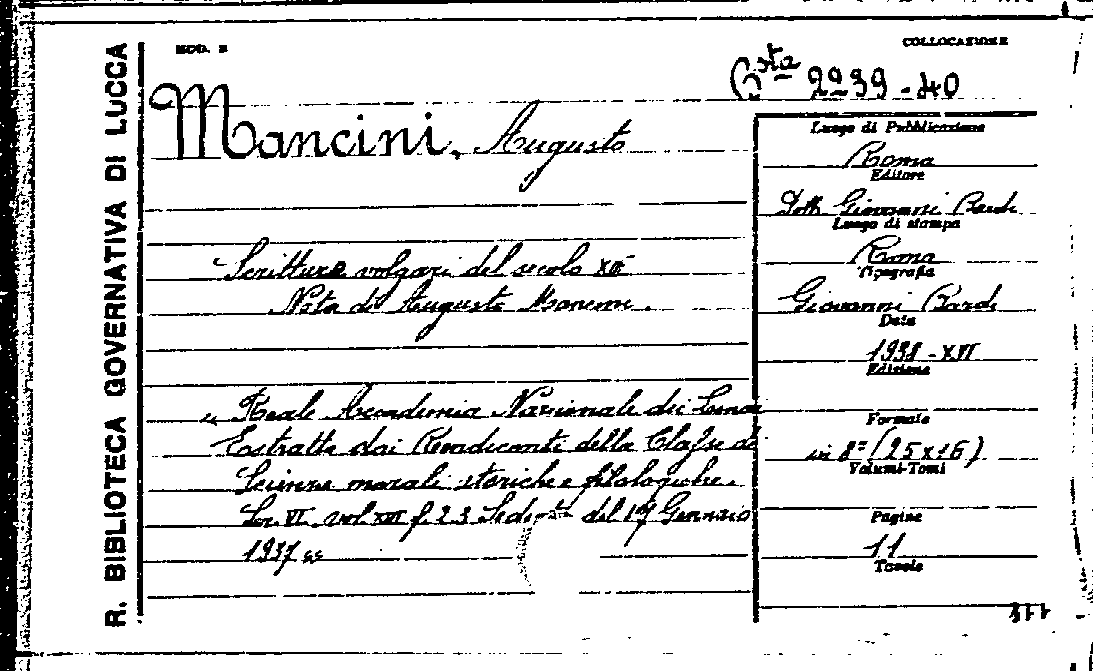 R. BIBLIOTECA GOVERNATIVA DI LUCCA
MOD. B
COLLOCAZIONE
Bsta 2939-40
Mancini, Augusto
Scritture volgari del secolo XII
Nota di Augusto Mancini.
« Reale Accademia Nazionale dei Lincei
Estratto dai Rendiconti della Classe di
Scienze morali storiche e filologiche.
Ser. VI vol XIII f. 2 3 Seduta del 17 Gennaio
1937 »
Luogo di Pubblicazione
Roma
Editore
Dott. Giovanni Bardi
Luogo di stampa
Roma
Tipografia
Giovanni Bardi
Data
1938 - XVI
Edizione
Formato
in 8º (25x16)
Volumi-Tomi
Pagine
11
Tavole